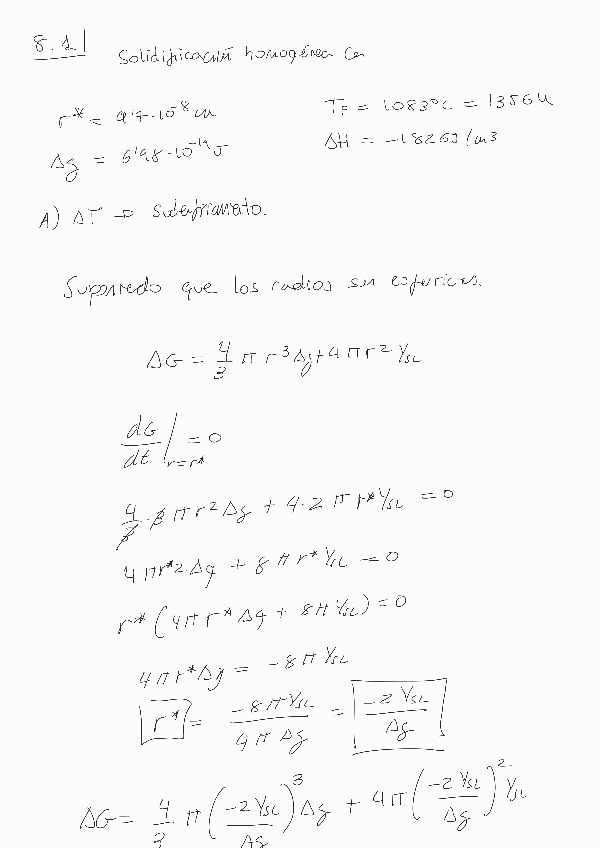 8.1
Solidificación homogénea Cu
r* = 9'9·10⁻⁸ cm
TF = 1083ºC = 1356K
Δg = 6'98·10⁻¹⁹ J
ΔH = -1826 J/cm3
A) ΔT → subenfriamiento.
Suponiendo que los radios son esfericos.
ΔG = 4/3 π r³ Δg + 4 π r² γSL
dG/dt | r=r* = 0
4/3 · 3 π r² Δg + 4·2 π r* γSL = 0
4 π r*2·Δg + 8 π r* γSL = 0
r* (4π r* Δg + 8π γSL) = 0
4 π r* Δg = -8π γSL
r* = -8π γSL / 4π Δg = -2 γSL / Δg
ΔG = 4/3 π (-2 γSL / Δg)³ Δg + 4π (-2 γSL / Δg)² γSL